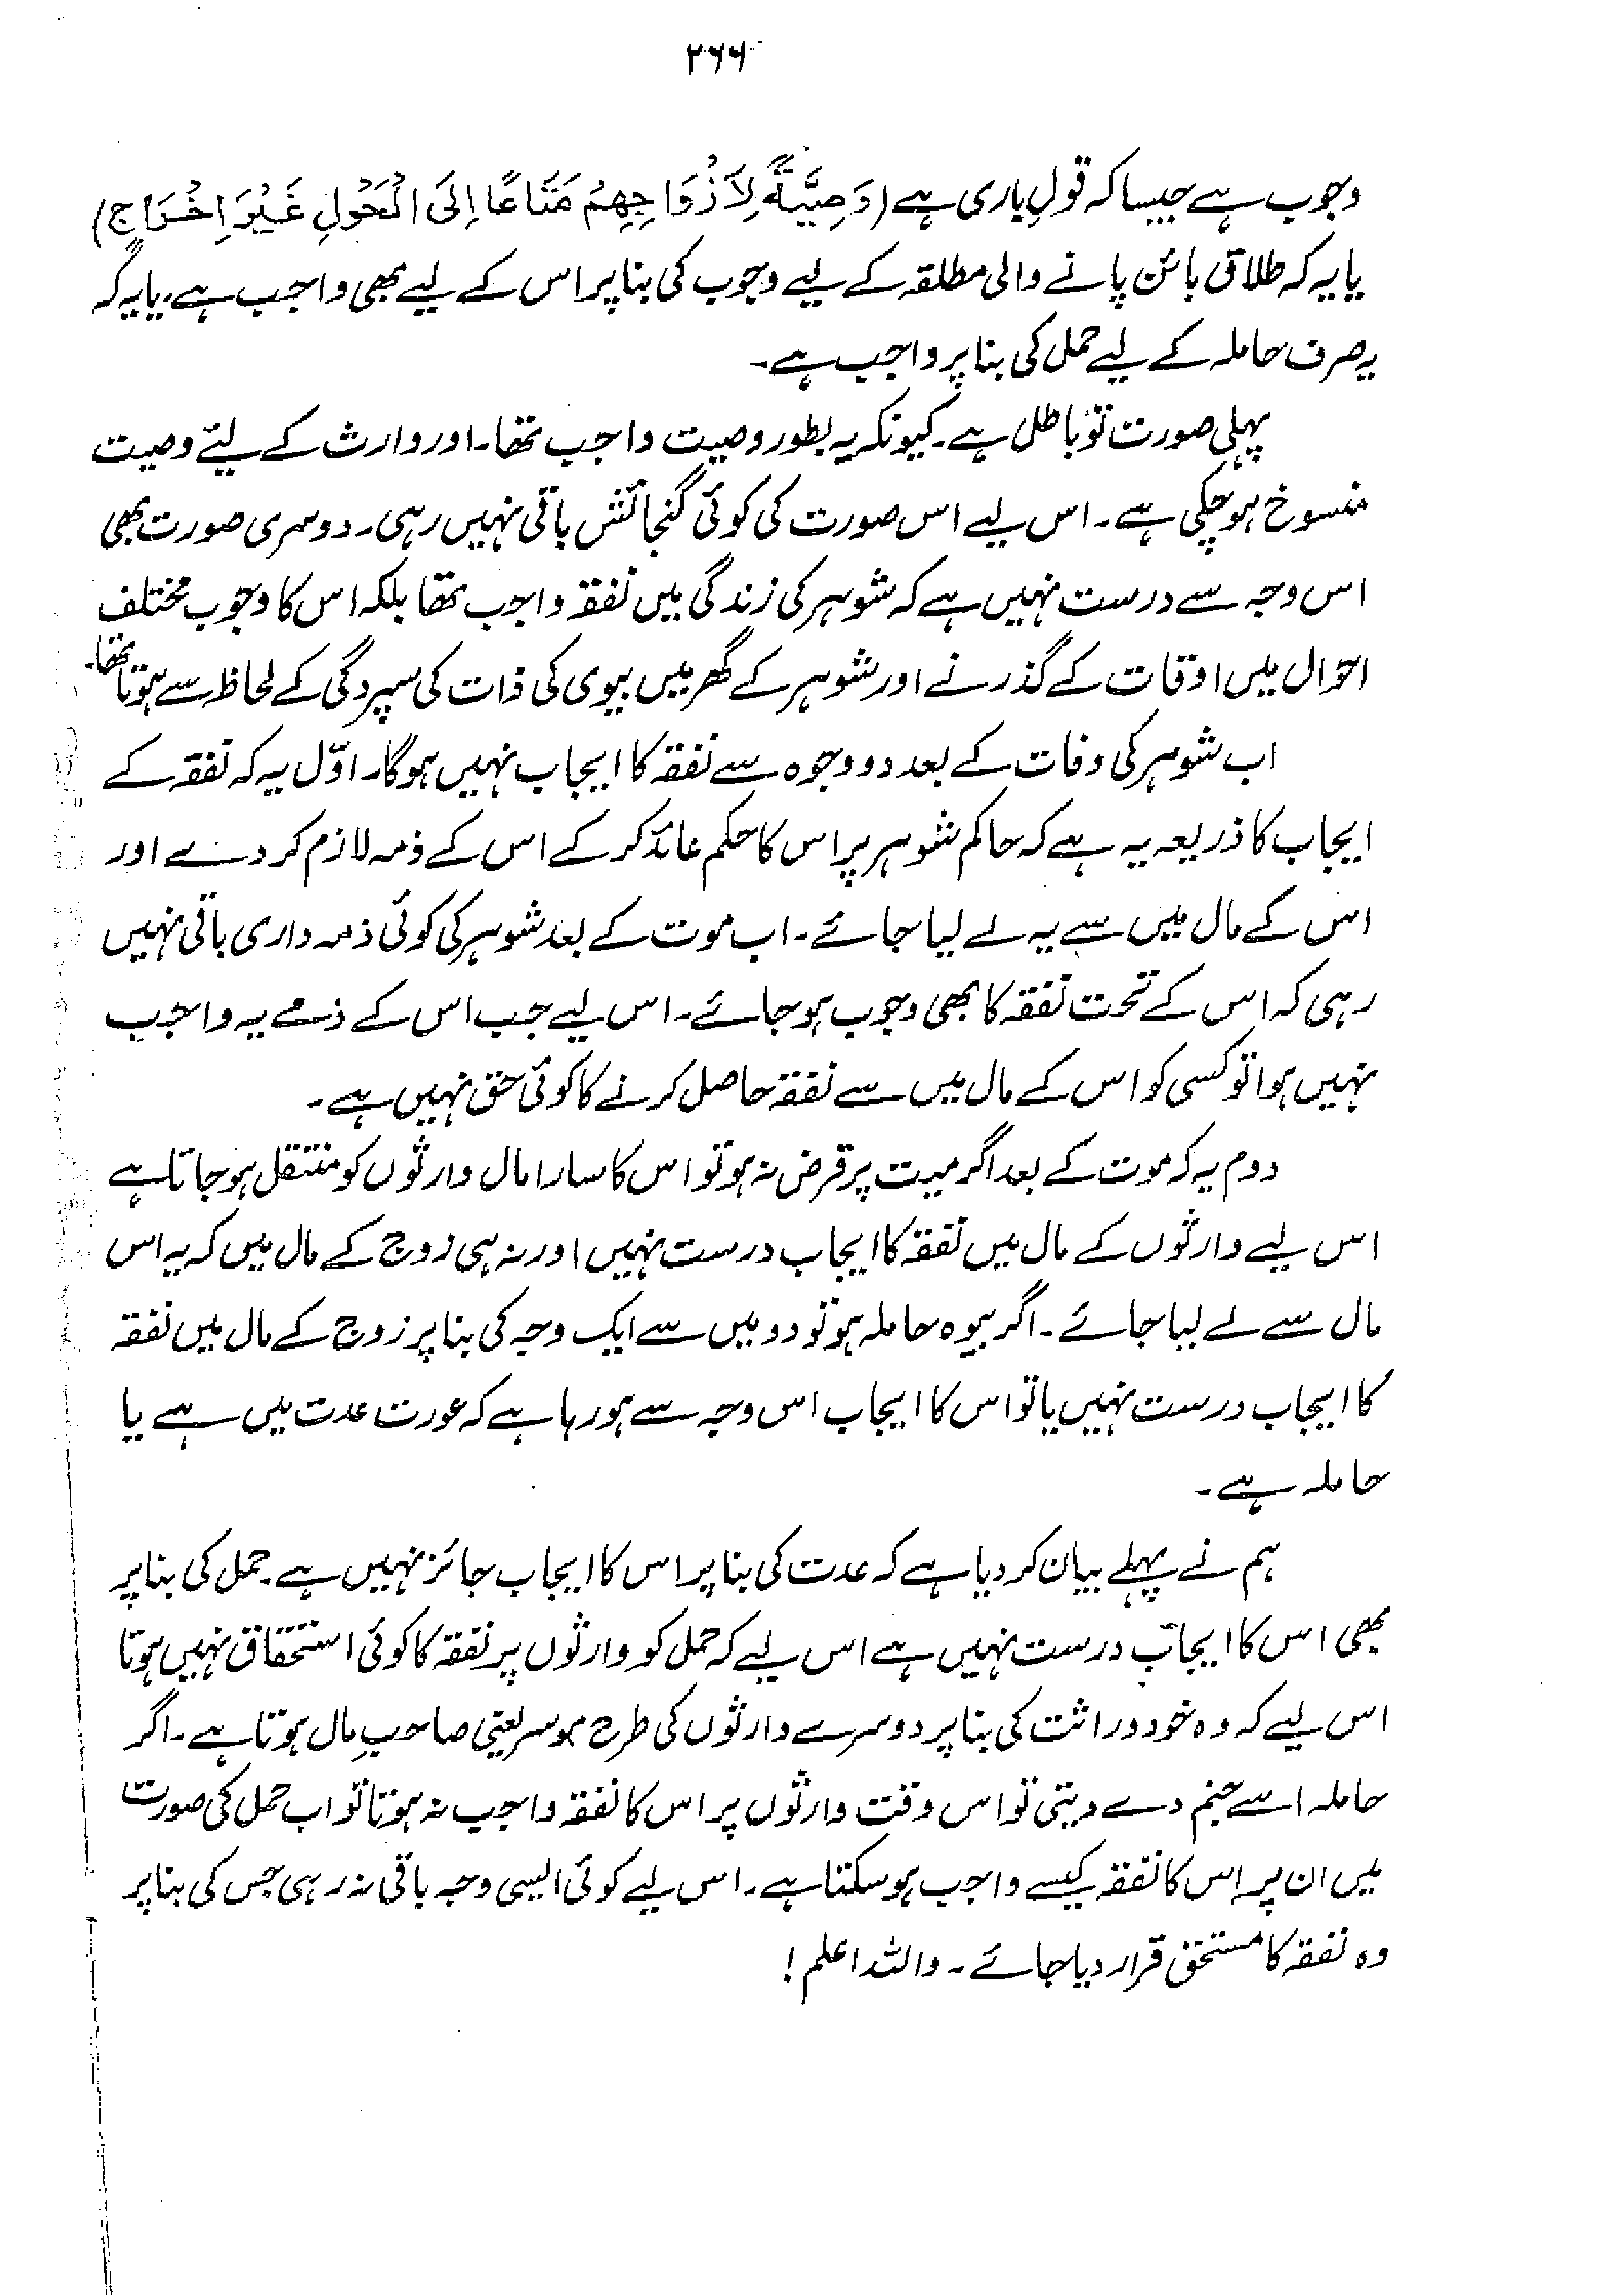 ۲۶۶
وجوب ہے جیسا کہ قولِ باری ہے (وَصِيَّةً لِاَزْوَاجِهِمْ مَتَاعًا اِلَى الْحَوْلِ غَيْرَ اِخْرَاجٍ)
یا یہ کہ طلاق بائن پانے والی مطلقہ کے لیے وجوب کی بنا پر اس کے لیے بھی واجب ہے، یا یہ کہ
یہ صرف حاملہ کے لیے حمل کی بنا پر واجب ہے۔
پہلی صورت تو باطل ہے۔ کیونکہ یہ بطور وصیت واجب تھا۔ اور وارث کے لیئے وصیت
منسوخ ہو چکی ہے۔ اس لیے اس صورت کی کوئی گنجائش باقی نہیں رہی۔ دوسری صورت بھی
اس وجہ سے درست نہیں ہے کہ شوہر کی زندگی میں نفقہ واجب تھا بلکہ اس کا وجوب مختلف
احوال میں اوقات کے گذرنے اور شوہر کے گھر میں بیوی کی ذات کی سپردگی کے لحاظ سے ہوتا تھا۔
اب شوہر کی وفات کے بعد دو وجوہ سے نفقہ کا ایجاب نہیں ہوگا۔ اوّل یہ کہ نفقہ کے
ایجاب کا ذریعہ یہ ہے کہ حاکم شوہر پر اس کا حکم عائد کر کے اس کے ذمہ لازم کر دے اور
اس کے مال میں سے یہ لے لیا جائے۔ اب موت کے بعد شوہر کی کوئی ذمہ داری باقی نہیں
رہی کہ اس کے تحت نفقہ کا بھی وجوب ہو جائے۔ اس لیے جب اس کے ذمے یہ واجب
نہیں ہوا تو کسی کو اس کے مال میں سے نفقہ حاصل کرنے کا کوئی حق نہیں ہے۔
دوم یہ کہ موت کے بعد اگر میت پر قرض نہ ہو تو اس کا سارا مال وارثوں کو منتقل ہو جاتا ہے
اس لیے وارثوں کے مال میں نفقہ کا ایجاب درست نہیں اور نہ ہی زوج کے مال میں کہ یہ اس
مال سے لے لیا جائے۔ اگر بیوہ حاملہ ہو تو دو میں سے ایک وجہ کی بنا پر زوج کے مال میں نفقہ
کا ایجاب درست نہیں یا تو اس کا ایجاب اس وجہ سے ہو رہا ہے کہ عورت عدت میں ہے یا
حاملہ ہے۔
ہم نے پہلے بیان کر دیا ہے کہ عدت کی بنا پر اس کا ایجاب جائز نہیں ہے۔ حمل کی بنا پر
بھی اس کا ایجاب درست نہیں ہے اس لیے کہ حمل کو وارثوں پر نفقہ کا کوئی استحقاق نہیں ہوتا
اس لیے کہ وہ خود وراثت کی بنا پر دوسرے وارثوں کی طرح موسر یعنی صاحبِ مال ہوتا ہے۔ اگر
حاملہ اسے جنم دے دیتی تو اس وقت وارثوں پر اس کا نفقہ واجب نہ ہوتا تو اب حمل کی صورت
میں ان پر اس کا نفقہ کیسے واجب ہو سکتا ہے۔ اس لیے کوئی ایسی وجہ باقی نہ رہی جس کی بنا پر
وہ نفقہ کا مستحق قرار دیا جائے۔ واللہ اعلم!